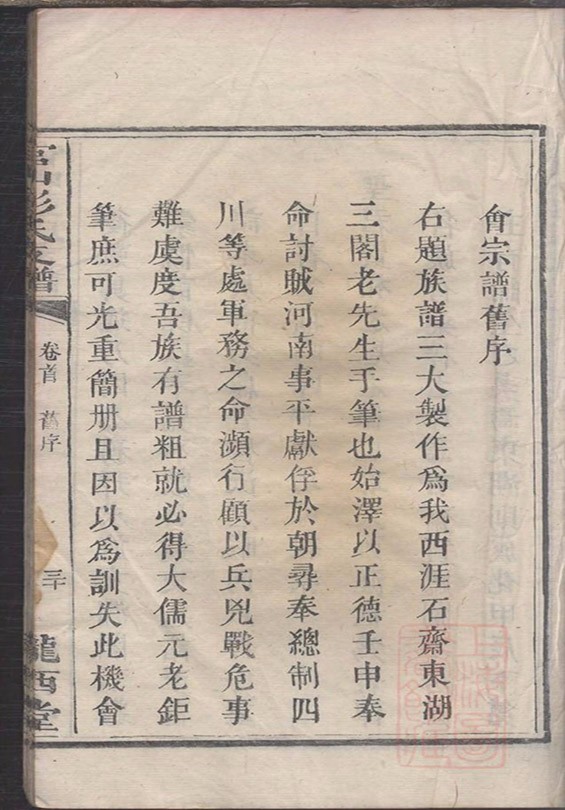 會宗譜舊序
右題族譜三大製作爲我西涯石齋東湖
三閣老先生手筆也始澤以正德壬申奉
命討賊河南事平獻俘於朝尋奉總制四
川等處軍務之命瀕行顧以兵兇戰危事
難虞度吾族有譜粗就必得大儒元老鉅
筆庶可光重簡册且因以爲訓失此機會
彭氏支譜
卷首 舊序
三十
隴西堂